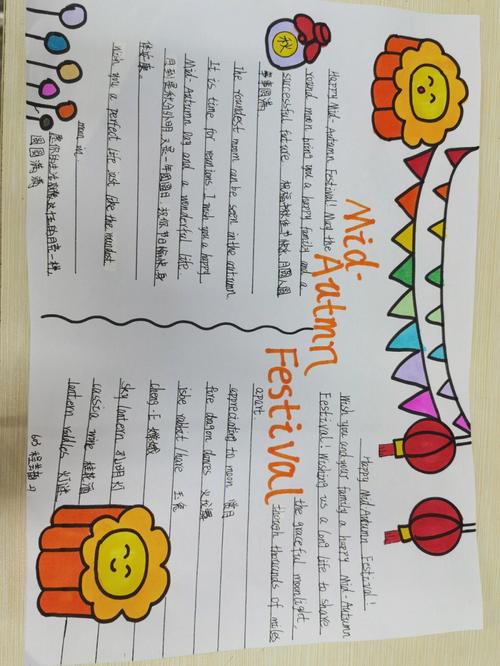 Mid-
Autmn
Festival
秋
Happy Mid-Autumn Festival! May the
round moon bring you a happy family and a
successful future. 祝福中秋佳节快乐 月圆人圆
事事圆满
The roundest moon can be seen in the autumn
It is time for reunions. I wish you a happy
Mid-Autumn Day and a wonderful life
月到是秋分外明 又是一年团圆日 祝你节日愉快 身
体安康。
Wish you a perfect life just like the roundest
moon in
圆圆满满
Happy Mid Autumn Festival!
Wish you and your family a happy Mid-Autumn
Festival! Wishing us a long life to share
the graceful moonlight,
though thousands of miles
apart
appreciated to moon 赏月
fire dragon dances 火龙舞
jade rabbit/hare 玉兔
Chang-E 嫦娥
sky lantern 孔明灯
cassia wine 桂花酒
lantern riddles 灯谜